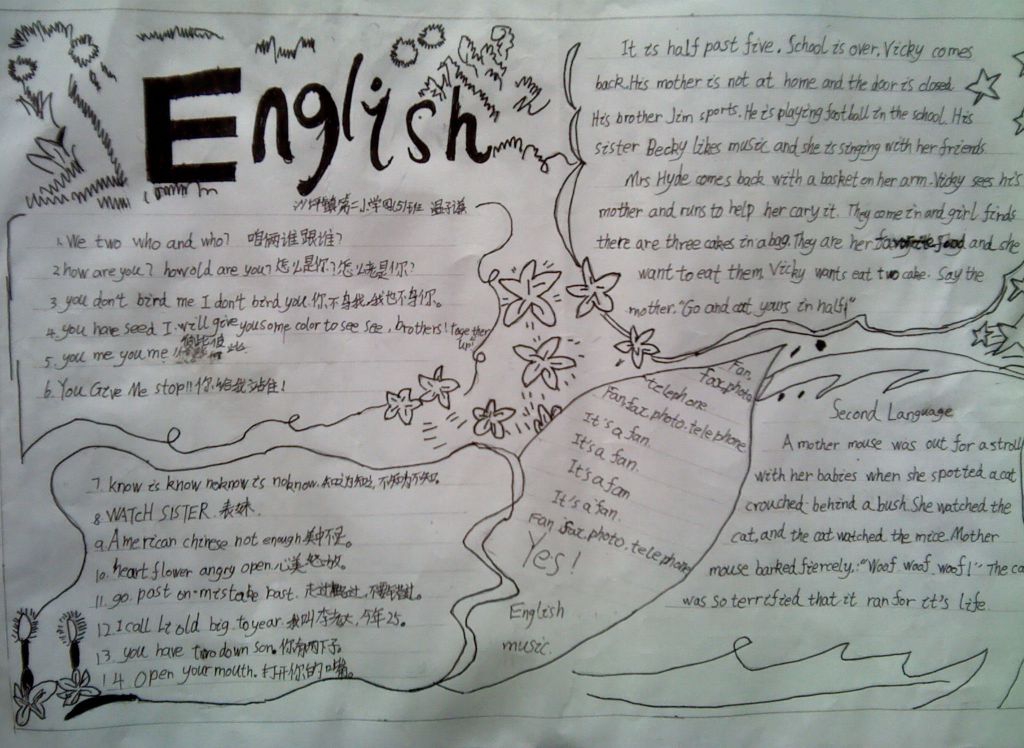 English
沙坪镇第二小学四(5)班 温子谦
1. We two who and who? 咱俩谁跟谁?
2 how are you? how old are you? 怎么是你?怎么老是你?
3. you don't bird me I don't bird you.你不鸟我,我也不鸟你。
4. you have seed I will give you some color to see see, brothers! together up!
5. you me you me 彼此彼此
6. You Give Me stop!! 你给我站住!
7. know is know noknow is noknow. 知之为知之,不知为不知。
8 WATCH SISTER. 表妹.
9. American chinese not enough 美中不足。
10. heart flower angry open. 心花怒放。
11. go past on mistake past. 走过路过,不要错过。
12 I call Li old big. to year. 我叫李老大,今年25。
13. you have two down son. 你有两下子。
14 Open your mouth. 打开你的嘴
It is half past five. School is over. Vicky comes
back. His mother is not at home and the door is closed.
His brother Jim sports. He is playing football in the school. His
sister Becky likes music and she is singing with her friends.
Mrs Hyde comes back with a basket on her arm. Vicky sees his
mother and runs to help her cary it. They come in and girl finds
there are three cakes in a bag. They are her favorite food and she
want to eat them. Vicky wants eat two cake. Say the
mother. "Go and eat yours in half!"
Fan,
fax, photo
telephone
Fan. fax. photo. telephone
It's a fan.
It's a fan.
It's a fan
It's a fan.
Fan fax. photo. telephone
Yes!
English
music.
Second Language
A mother mouse was out for a stroll
with her babies when she spotted a cat
crouched behind a bush. She watched the
cat, and the cat watched the mice. Mother
mouse barked fiercely.: "Woof. woof. woof!" The ca
was so terrified that it ran for it's life